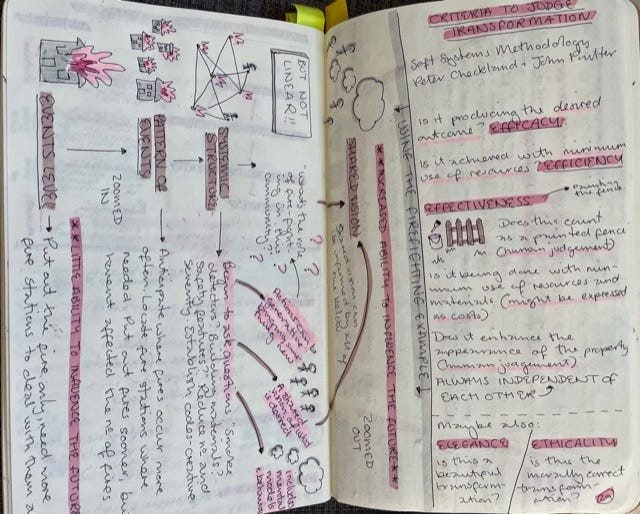 BUT NOT
LINEAR!!
EVENTS LEVEL
Put out the fire only, need more
fire stations to deal with them
ZOOMED
IN
PATTERN OF
EVENTS
Anticipate where fires occur more
often. Locate fire stations where
needed. Put out fires sooner, but
haven't affected the no of fires
** LITTLE ABILITY TO INFLUENCE THE FUTURE
SYSTEMIC
STRUCTURE
Begin to ask questions "smoke
detectors? Building materials?
Safety features?" Reduce no. and
severity. Establish codes - create
What's the role
of fire-fight
ing in this
community?
?
?
?
?
A shared
vision of
is clarified
includes
mental
models
SHARED VISION
** INCREASED ABILITY TO INFLUENCE THE FUTURE **
ZOOMED
OUT
USING THE FIREFIGHTING EXAMPLE
CRITERIA TO JUDGE
TRANSFORMATION
Soft Systems Methodology
Peter Checkland + John Poulter
Is it producing the desired
outcome? EFFICACY
Is it achieved with minimum
use of resources? EFFICIENCY
EFFECTIVENESS
Painting
the fence
Does this count
as a painted fence
(human judgement)
Is it being done with min-
imum use of resources and
materials (might be expressed
as costs)
Does it enhance the
appearance of the property
(human judgement)
ALWAYS INDEPENDENT OF
EACH OTHER
Maybe also:
ELEGANCE
Is this a
beautiful
transform-
ation?
ETHICALITY
is this the
morally correct
transform-
ation?